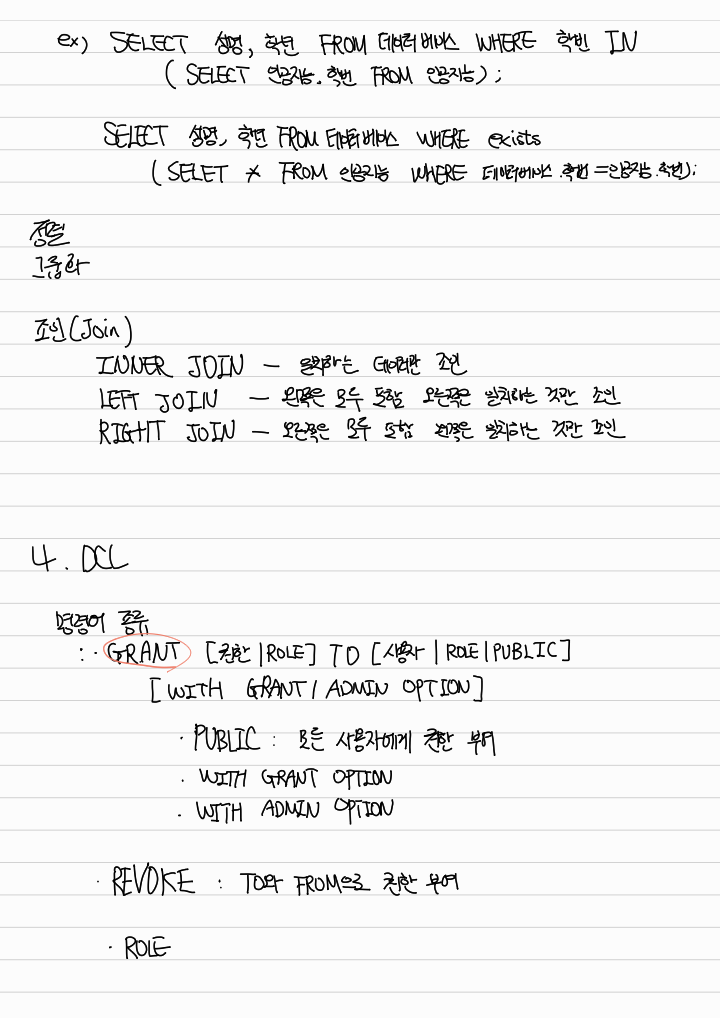 ex) SELECT 성명, 학번 FROM 데이터베이스 WHERE 학번 IN
( SELECT 인공지능.학번 FROM 인공지능);
SELECT 성명, 학번 FROM 데이터베이스 WHERE exists
( SELET * FROM 인공지능 WHERE 데이터베이스.학번 = 인공지능.학번);
정렬
그룹화
조인(Join)
INNER JOIN — 일치하는 데이터만 조인
LEFT JOIN — 왼쪽은 모두 포함 오른쪽은 일치하는 것만 조인
RIGHT JOIN — 오른쪽은 모두 포함 왼쪽은 일치하는 것만 조인
4. DCL
명령어 종류
: · GRANT [권한|ROLE] TO [사용자|ROLE|PUBLIC]
[WITH GRANT/ADMIN OPTION]
· PUBLIC : 모든 사용자에게 권한 부여
· WITH GRANT OPTION
· WITH ADMIN OPTION
· REVOKE : TO와 FROM으로 권한 부여
· ROLE